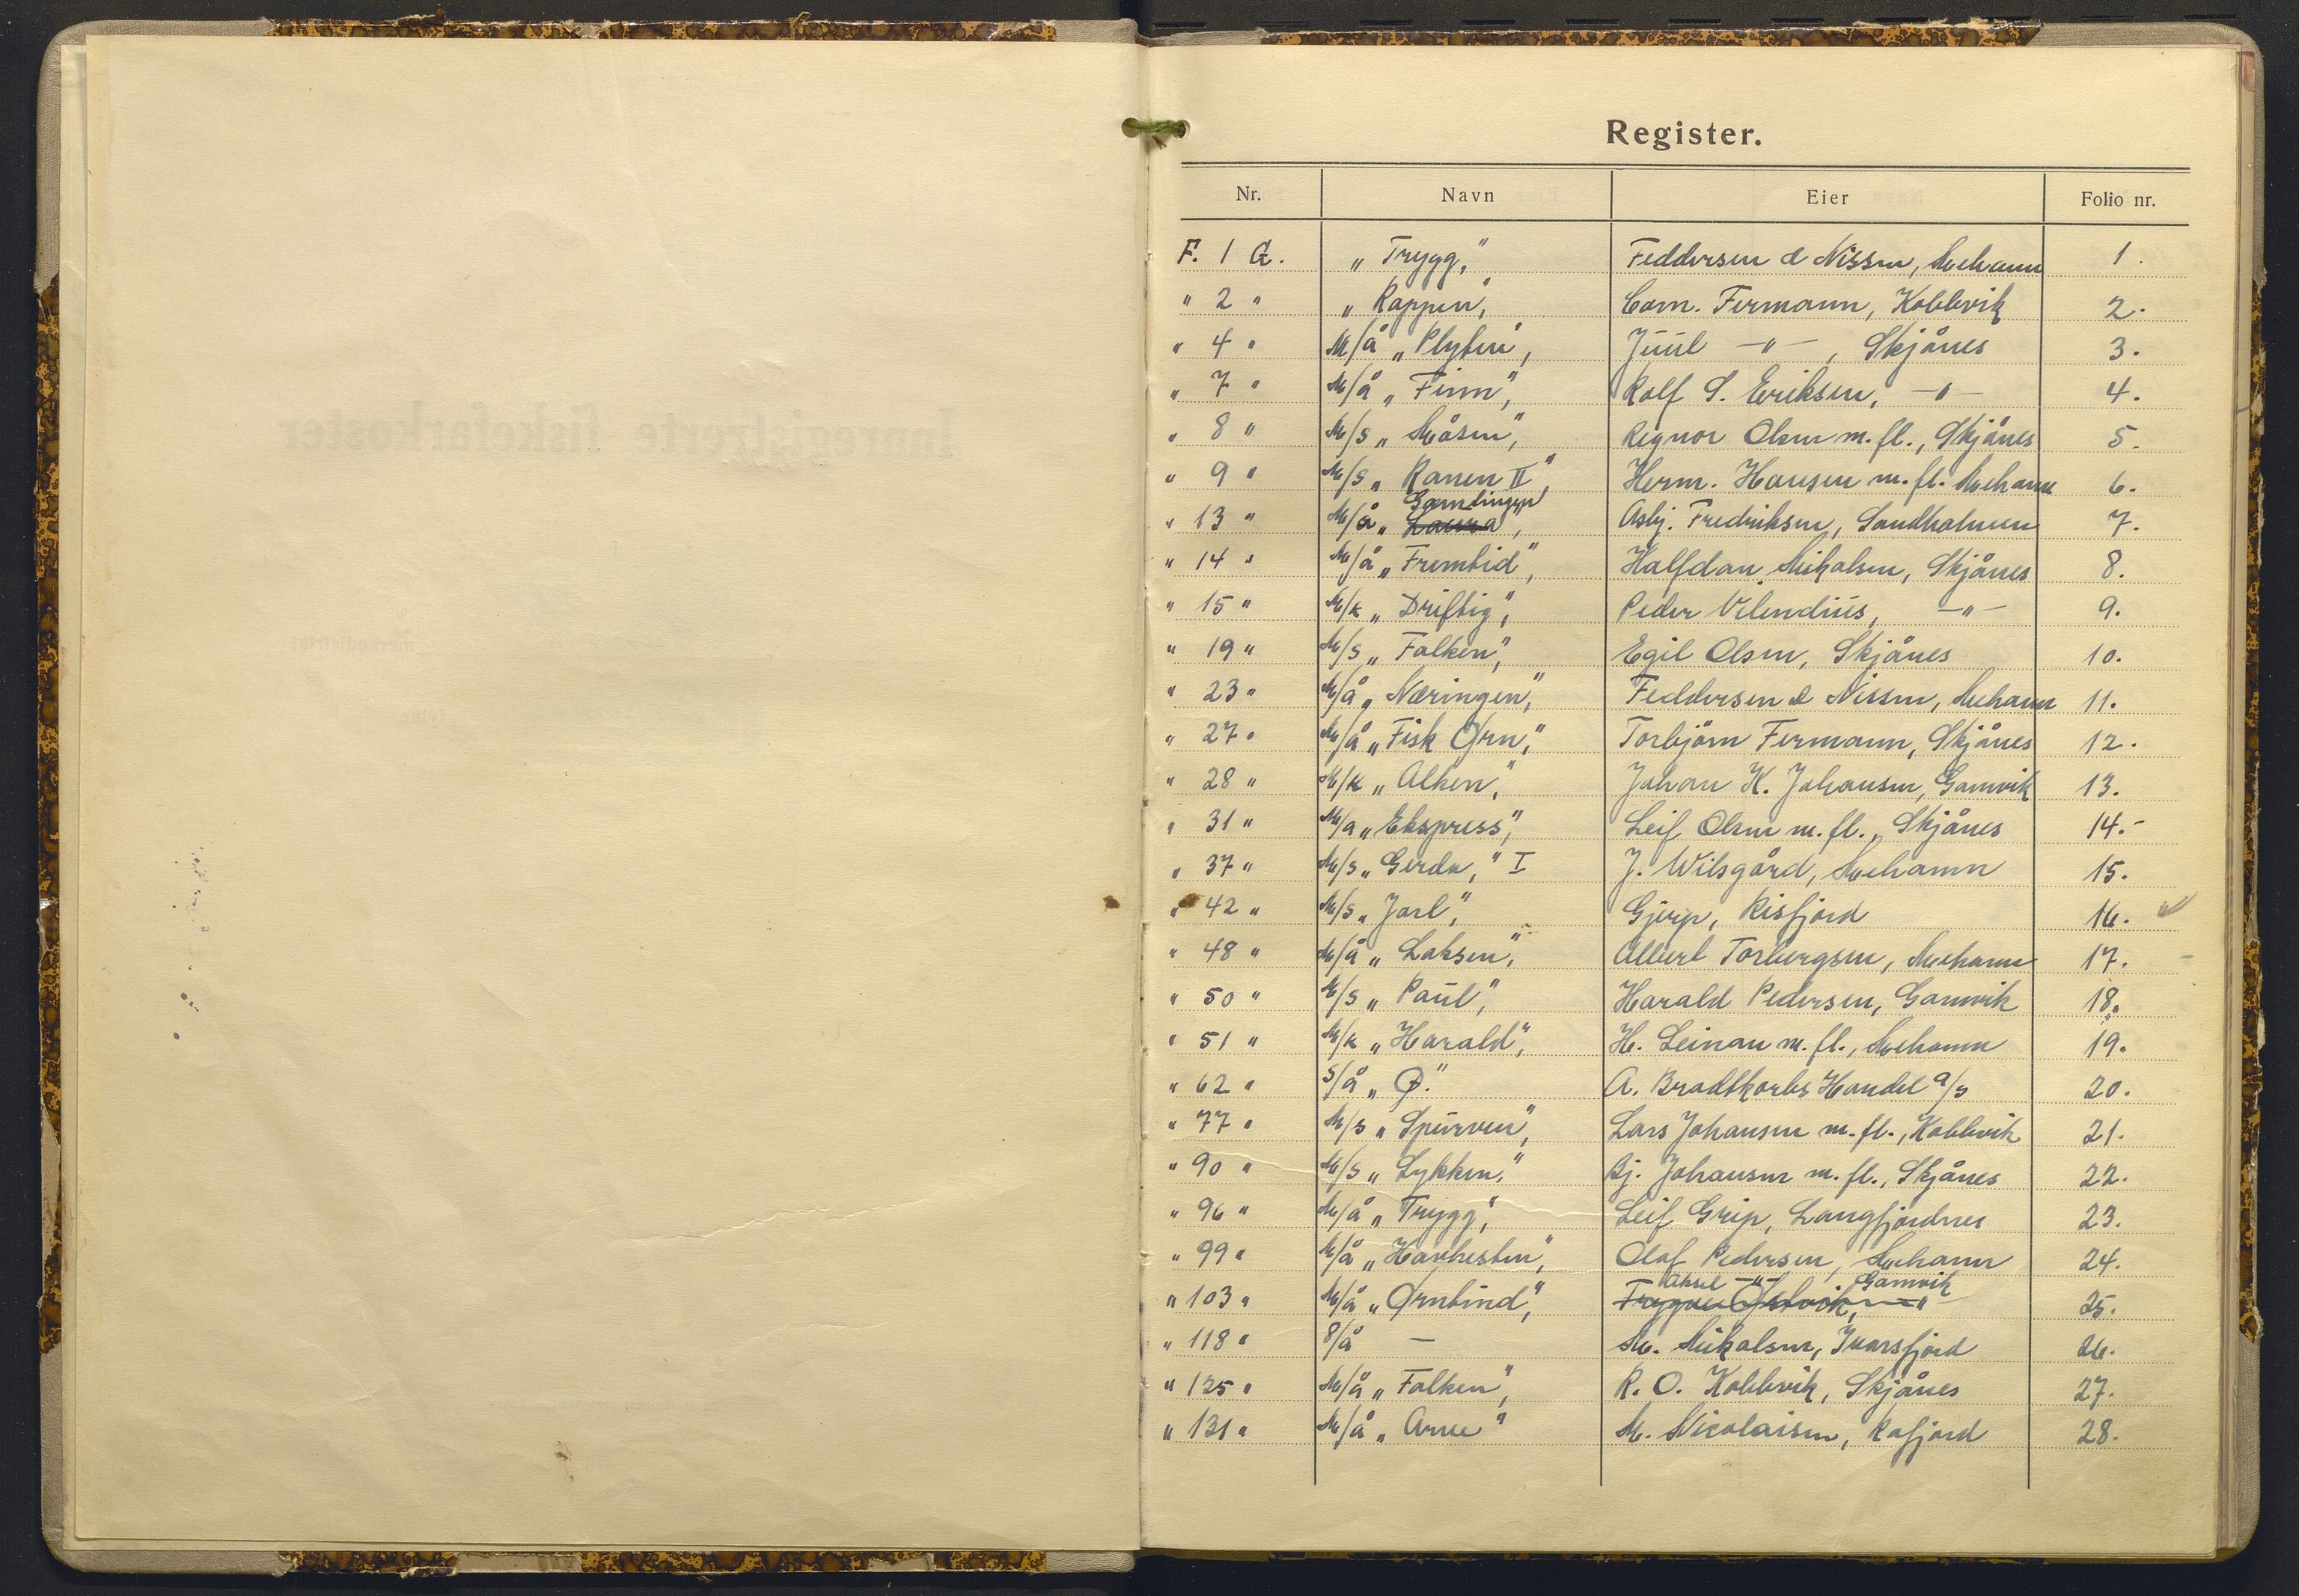 Register.
Nr. Navn Eier Folio nr.
F. 1 G. „Trygg," Feddersen & Nissen, Mehamn 1.
" 2 " „Rappen", Corn. Fermann, Kobbvik 2.
" 4 " M/å „Plyten", Juul —"—, Skjånes 3.
" 7 " M/å „Finn", Rolf S. Eriksen, —"— 4.
" 8 " M/s „Måsen", Regnor Olsen m. fl., Skjånes 5.
" 9 " M/s „Ranen II", Herm. Hansen m. fl. Mehamn 6.
Gamlingen
" 13 " M/å „Laura", Asbj. Fredriksen, Sandholmen 7.
" 14 " M/å „Fremtid", Halfdan Mikalsen, Skjånes 8.
" 15 " M/k „Driftig", Peder Vilendius, —"— 9.
" 19 " M/s „Falken", Egil Olsen, Skjånes 10.
" 23 " M/å „Næringen", Feddersen & Nissen, Mehamn 11.
" 27 " M/å „Fisk Ørn," Torbjørn Fermann, Skjånes 12.
" 28 " M/k „Alken," Johan K. Johansen, Gamvik 13.
" 31 " M/a „Ekspress", Leif Olsen m. fl., Skjånes 14.-
" 37 " M/s „Gerda," I J. Wilsgård, Mehamn 15.
" 42 " M/s „Jarl", Gjerp, Risfjord 16.
" 48 " M/å „Laksen", Albert Torbergsen, Mehamn 17.
" 50 " M/s „Paul", Harald Pedersen, Gamvik 18.
" 51 " M/k „Harald", H. Leinan m. fl., Mehamn 19.
" 62 " S/å „Ø." A. Bradtkorbs Handel a/s 20.
" 77 " M/s „Spurven", Lars Johansen m. fl., Kobbvik 21.
" 90 " M/s „Lykken," Bj. Johansen m. fl., Skjånes 22.
" 96 " M/å „Trygg", Leif Grip, Langfjordnes 23.
" 99 " M/å „Havhesten", Olaf Pedersen, Mehamn 24.
Aksel —"— Gamvik
" 103 " M/å „Ørntind", Trygve Østvik, —"— 25.
" 118 " S/å — M. Mikalsen, Ivarsfjord 26.
" 125 " M/å „Falken", R. O. Kobbvik, Skjånes 27.
" 131 " M/å „Arne" M. Nicolaisen, Kofjord 28.